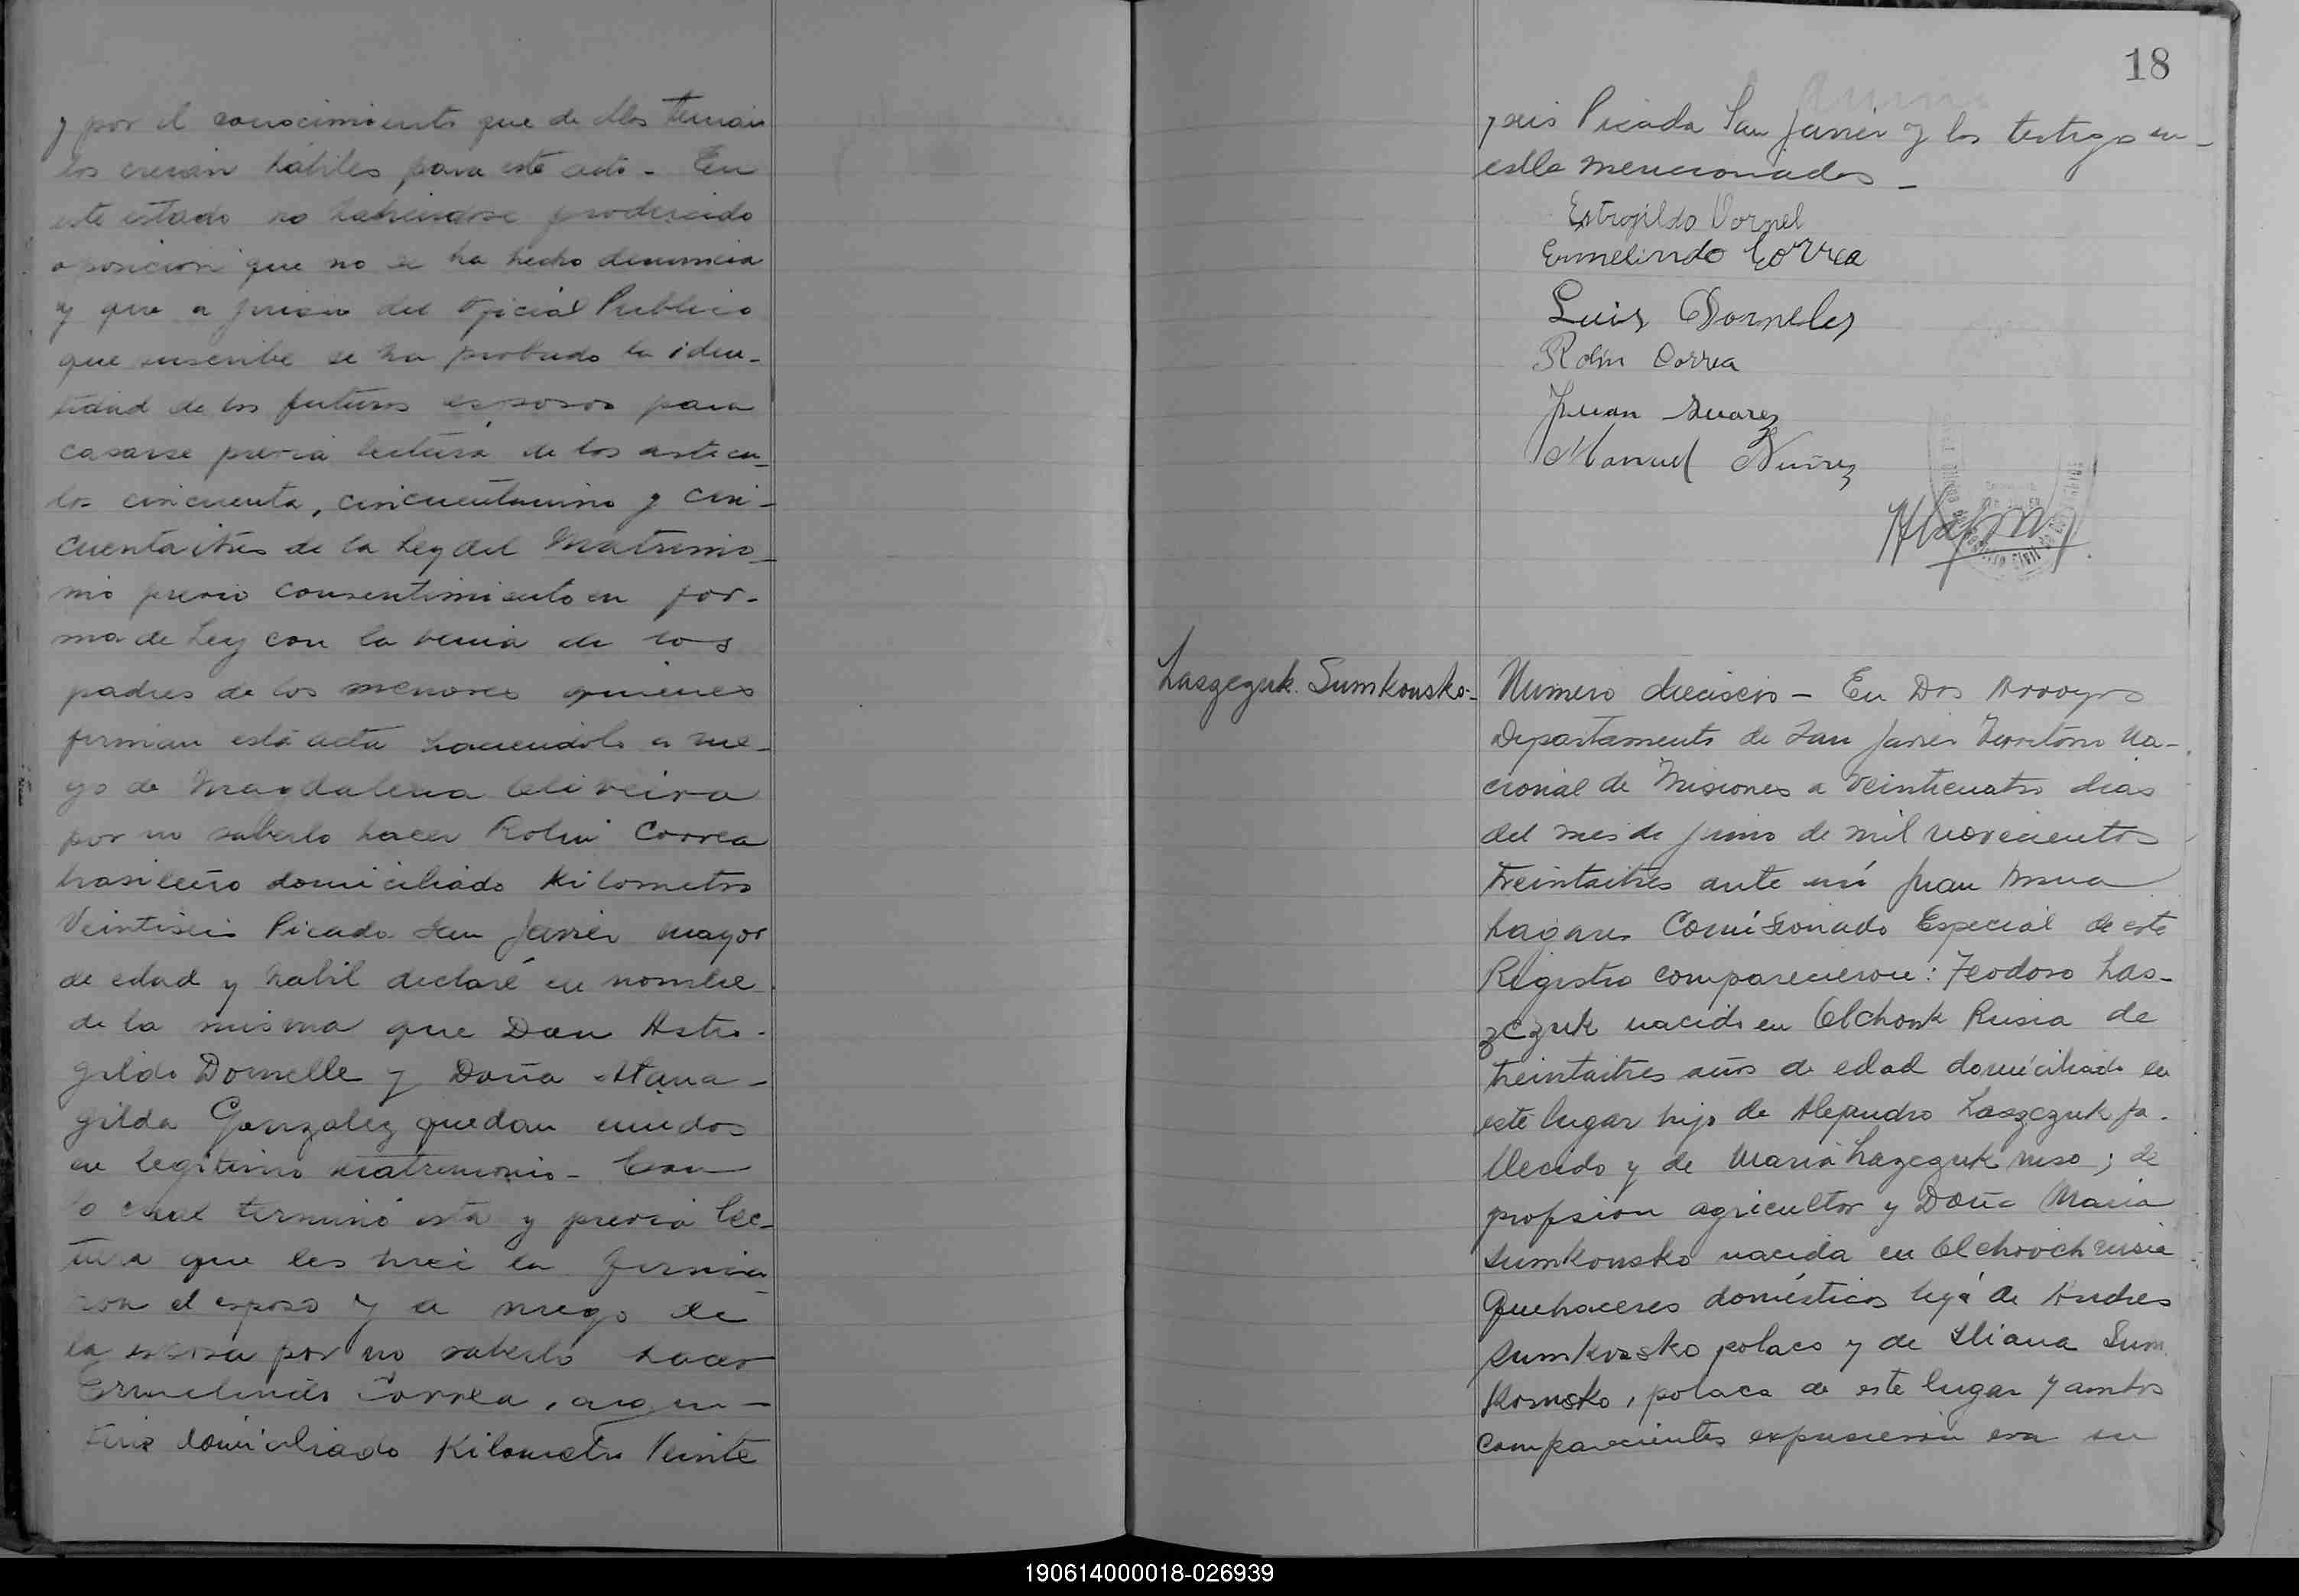 y por el conocimiento que de ellos tenian
los creian habiles para este acto - En
este estado no habiendose producido
oposicion que no se ha hecho denuncia
y que a juicio del Oficial Publico
que suscribe se ha probado la iden-
tidad de los futuros esposos para
casarse previa lectura de los articu-
los cincuenta, cincuentaiuno y cin-
cuentaitres de la Ley del Matrimo-
nio previo consentimiento en for-
ma de Ley con la venia de los
padres de los menores quienes
firman esta acta haciendolo a rue-
go de Magdalena Oliveira
por no saberlo hacer Rolin Correa
brasileño domiciliado Kilometro
Veintiseis Picada San Javier mayor
de edad y habil declaré en nombre
de la misma que Don Astro-
gildo Dornelle y Doña Atana-
gilda Gonzalez quedan unidos
en legitimo matrimonio - Con
lo cual terminó esta y previa lec-
tura que les hice la firma-
ron el esposo y a ruego de
la esposa por no saberlo hacer
Ermelindo Correa, argen-
tino domiciliado Kilometro Veinte
18
y seis Picada San Javier y los testigos en
ella mencionados -
Estrogildo Dornel
Ermelindo Correa
Luis Dorneles
Rolin Correa
Juan Suarez
Manuel Nuñez
Laszczuk. Sumkousko-
Numero dieciseis - En Dos Arroyos
Departamento de San Javier Territorio Na-
cional de Misiones a veinticuatro dias
del mes de junio de mil novecientos
treintaitres ante mi Juan
Lagares Comisionado Especial de este
Registro comparecieron: Teodoro Las-
zczuk nacido en Olchowk Rusia de
treintaitres años de edad domiciliado en
este lugar hijo de Alejandro Laszczuk fa-
llecido y de Maria Lazczuk ruso; de
profesion agricultor y Doña Maria
Sumkousko nacida en Olchowch rusia
Quehaceres domésticos hija de Andres
Sumkosko polaco y de Iliana Sum
Komsko, polaca de este lugar y ambos
comparecientes expusieron era su
190614000018-026939